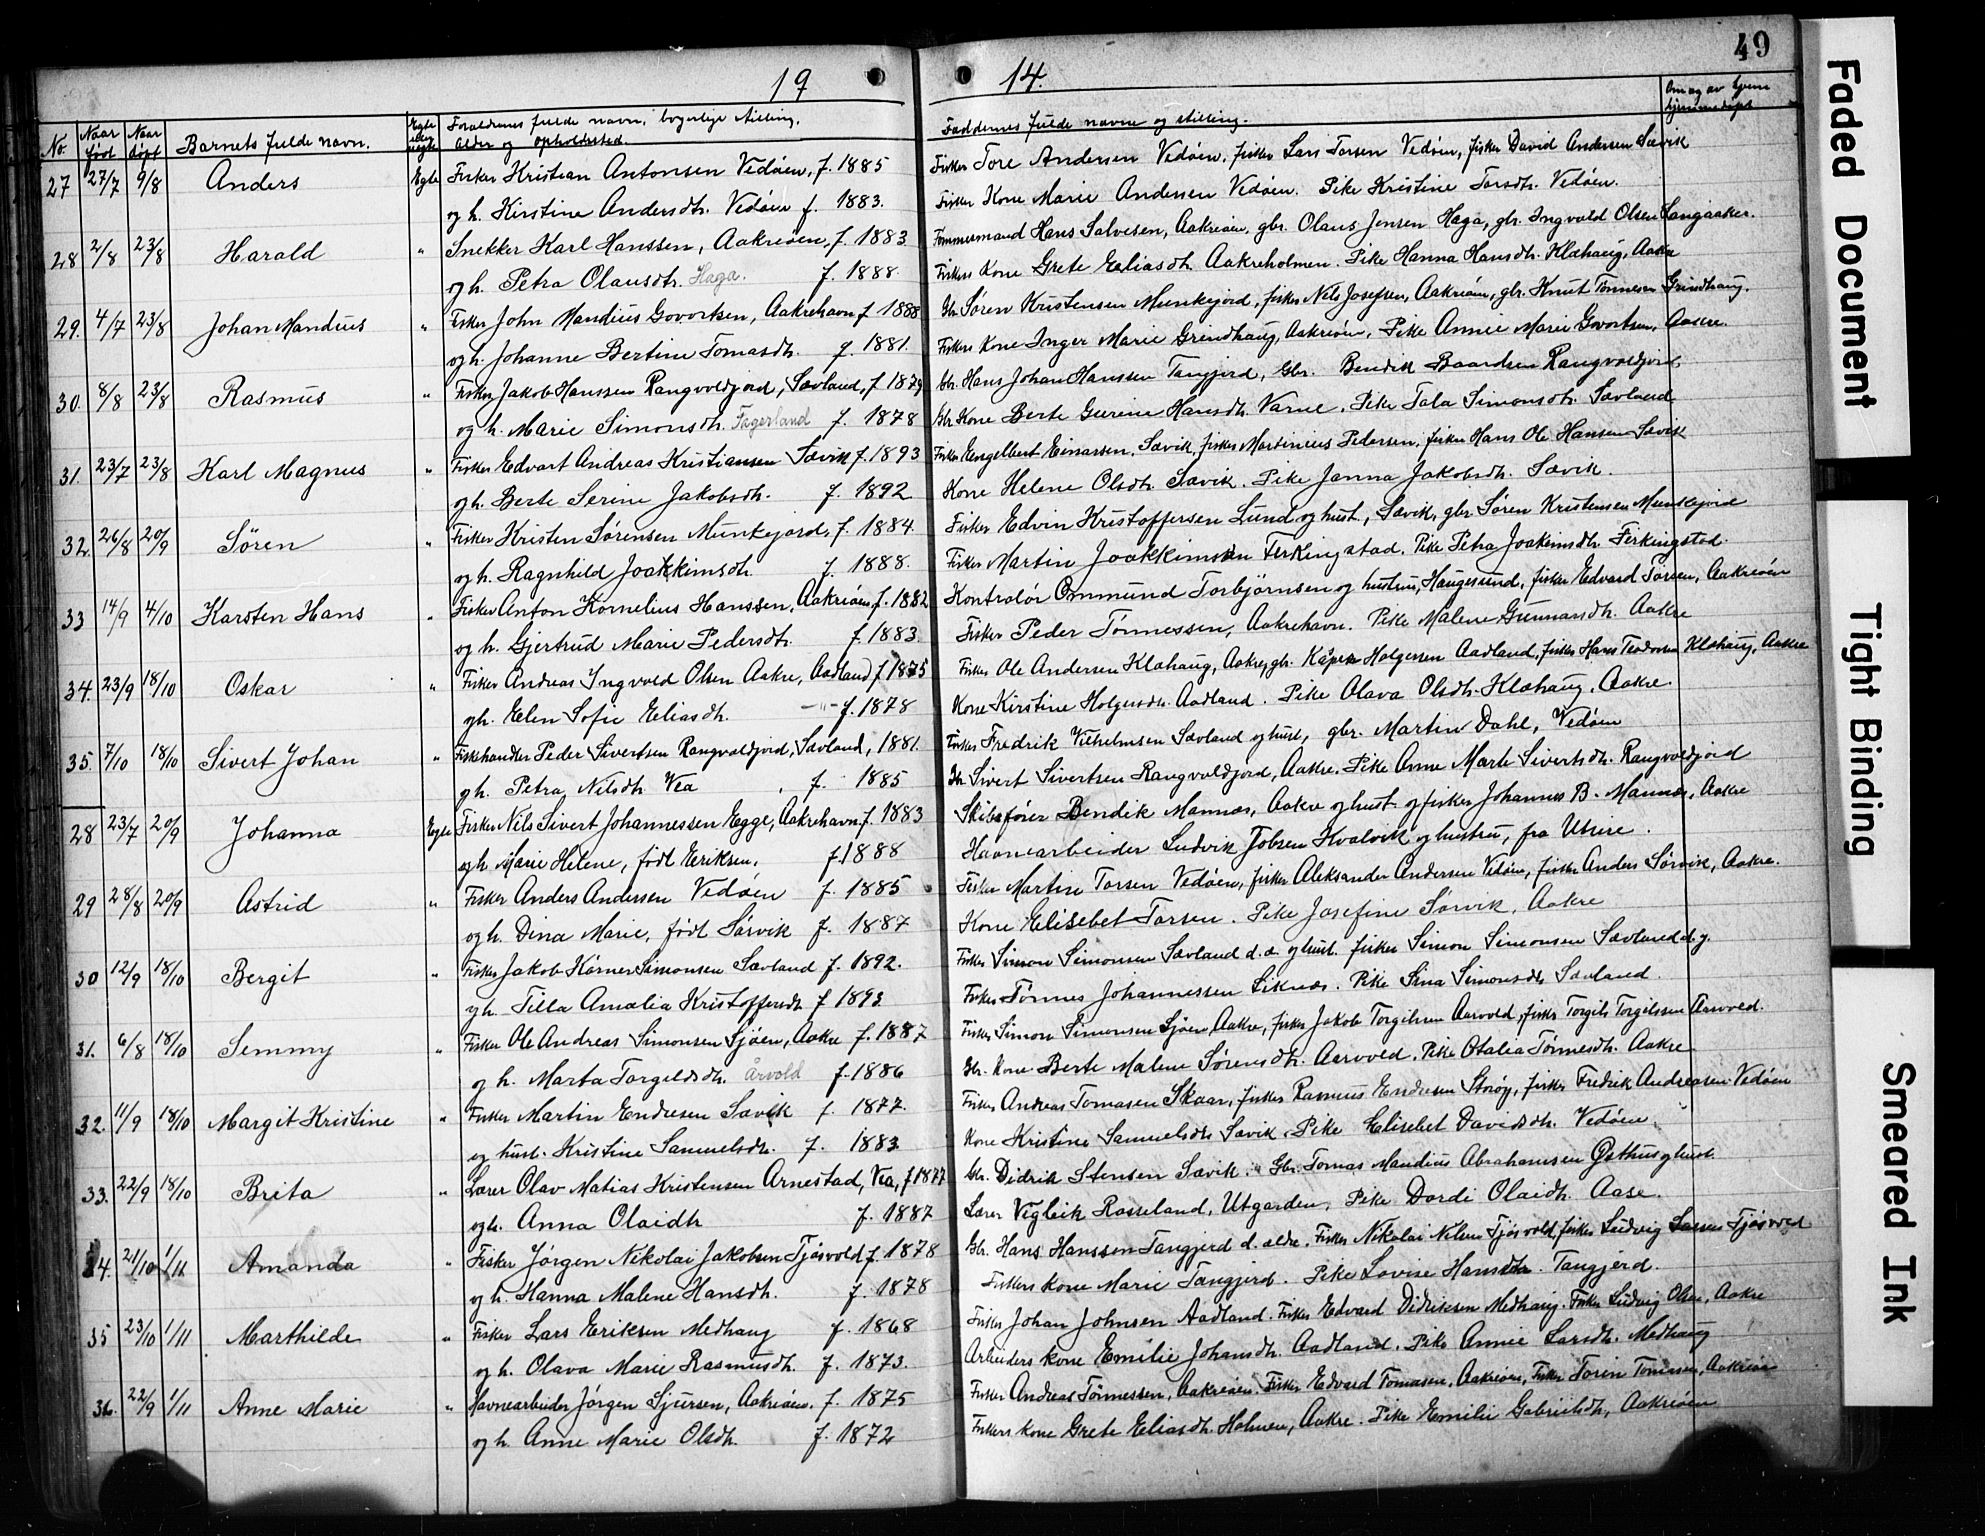 49
19 14.
No. Naar født Naar døpt Barnets fulde navn. Egte eller uegte Forældrenes fulde navn, borgerlige stilling, alder og opholdssted. Faddernes fulde navne og stilling.
27 27/7 9/8 Anders Egte Fisker Kristian Antonsen Vedøen, f. 1885 Fisker Tore Andersen Vedøen, fisker Lars Torsen Vedøen, fisker David Andersen Sævik
og h. Kirstine Andersdtr. Vedøen f. 1883. Fisker Kone Marie Andersen Vedøen. Pike Kristine Torsdtr. Vedøen.
28 2/8 23/8 Harald " Snekker Karl Hanssen, Aakreøen, f. 1883 Tømmermand Hans Salvesen, Aakreøen, gbr. Olaus Jensen Haga, gbr. Ingvald Olsen Langaaker.
og h. Petra Olausdtr. Haga. f. 1888. Fiskers Kone Grete Eliasdtr. Aakreholmen. Pike Hanna Hansdtr. Klæhaug, Aakre
29. 4/7 23/8 Johan Mandius " Fisker John Mandius Govertsen, Aakrehavn f 1888 Gbr Søren Kristensen Munkejord, fisker Nils Josefsen, Aakreøen, gbr. Knut Tønnesen Grindhaug.
og h. Johanne Bertine Tomasdtr. f. 1881. Fiskers Kone Inger Marie Grindhaug, Aakreøen, Pike Annie Marie Govertsen, Aakre.
30. 8/8 23/8 Rasmus " Fisker Jakob Hanssen Rangvoldjord, Sævland, f 1879 Gbr. Hans Johan Hanssen Tangjerd, Gbr. Bendik Baardsen Rangvoldjord,
og h. Marie Simonsdtr. Fagerland f. 1878 Gbr. Kone Berte Gurine Hansdtr. Varne. Pike Tala Simonsdtr. Sævland
31. 23/7 23/8 Karl Magnus " Fisker Edvart Andreas Kristiansen Sævik f. 1893 Fisker Engelbert Einarsen, Sævik, fisker Martinius Pedersen, fisker Hans Ole Hansen Sævik
og h. Berte Serine Jakobsdtr. f. 1892 Kone Helene Olsdtr. Sævik. Pike Janna Jakobsdtr. Sævik.
32. 26/8 20/9 Søren " Fisker Kristen Sørensen Munkejord, f. 1884. Fisker Edvin Kristoffersen Lund og hust., Sævik, gbr. Søren Kristensen Munkejord
og h. Ragnhild Joakkimsdtr. f. 1888. Fisker Martin Joakkimsen Ferkingstad. Pike Petra Joakimsdtr. Ferkingstad.
33 14/9 4/10 Karsten Hans " Fisker Anton Kornelius Hanssen, Aakreøen, f. 1882 Kontrolør Ommund Torbjørnsen og hustru, Haugesund, fisker Edvard Torsen, Aakreøen
og h. Gjertrud Marie Pedersdtr. f. 1883. Fisker Peder Tønnessen, Aakrehavn. Pike Malene Gunnarsdtr. Aakre
34. 23/9 18/10 Oskar " Fisker Andreas Ingvold Olsen Aakre, Aadland f 1875 Fisker Ole Andersen Klæhaug, Aakre, gbr. Holgersen Aadland, fisker Hans Teodorsen Klæhaug, Aakre
og h. Elen Sofie Eliasdtr. -"- f. 1878 Kone Kirstine Holgersdtr. Aadland. Pike Olava Olsdtr. Klæhaug, Aakre.
35. 7/10 18/10 Sivert Johan " Fiskehandler Peder Sivertsen Rangvoldjord, Sævland, 1881. Fisker Fredrik Vilhelmsen Sævland og hust., gbr. Martin Dahl, Vedøen
og h. Petra Nilsdtr. Vea f. 1885 Gbr Sivert Sivertsen Rangvoldjord, Aakre. Pike Anne Marte Sivertsdtr. Rangvoldjord
28 23/7 20/9 Johanna Egte Fisker Nils Sivert Johannessen Egge, Aakrehavn f. 1883 Skibsfører Bendik Mannes, Aakre og hust. og fisker Johannes B. Mannes, Aakre
og h. Marie Helene, født Eriksen. f. 1888 Havnearbeider Ludvik Jobsen Kvalvik og hustru, fra Utsire.
29 28/8 20/9 Astrid " Fisker Anders Andersen Vedøen f. 1885 Fisker Martin Torsen Vedøen, fisker Aleksander Andersen Vedøen, fisker Anders Sørvik, Aakre.
og h. Dina Marie, født Sørvik f. 1887 Kone Elisebet Torsen. Pike Josefine Sørvik, Aakre
30 12/9 18/10 Bergit " Fisker Jakob Kørner Simonsen Sævland f. 1892. Fisker Simon Simonsen Sævland d.æ. og hust. fisker Simon Simonsen Sævland d. y.
og h. Tilla Amalia Kristoffersdtr f 1893 Fisker Tønnes Johannessen Liknes. Pike Sina Simonsdtr. Sævland.
31. 6/8 18/10 Semmy " Fisker Ole Andreas Simonsen Sjøen, Aakre f. 1887 Fisker Simon Simonsen Sjøen, Aakre, fisker Jakob Torgilsen Aarvold, fisker Torgils Torgilssen Aarvold.
og h. Marta Torgeldsdtr. Årvold f. 1886 Gbr. Kone Berte Malene Sørensdtr. Aarvold. Pike Otalia Tønnesdtr. Aakre
32. 11/9 18/10 Margit Kristine " Fisker Martin Endresen Sævik f. 1877. Fisker Andreas Tomasen Skaar, fisker Rasmus Endresen Storøy, fisker Fredrik Andreasen Vedøen
og hust. Kristine Samuelsdtr. f. 1883 Kone Kristine Samuelsdtr. Sævik. Pike Elisebet Davidsdtr. Vedøen
33. 22/9 18/10 Brita " Lærer Olav Matias Kristensen Arnestad, Vea, f 1877 Gbr. Didrik Stensen Sævik. Gbr. Tomas Mandius Abrahamsen Østhus og hust.
og h. Anna Olaidtr f. 1887 Lærer Vigleik Rosseland, Utgarden, Pike Dordi Olaidtr. Aase.
34. 21/10 1/11 Amanda " Fisker Jørgen Nikolai Jakobsen Tjøsvold f. 1878 Gbr. Hans Hanssen Tangjerd d. ældre. Fisker Nikolai Nilsen Tjøsvold, fisker Ludvig Larsen Tjøsvold
og h. Hanna Malene Hansdtr. f. 1878 Fiskers kone Marie Tangjerd. Pike Lovise Hansdtr. Tangjerd.
35 23/10 1/11 Marthilde " Fisker Lars Eriksen Medhaug f. 1868 Fisker Johan Johnsen Aadland. Fisker Edvard Didriksen Medhaug. Fisker Ludvig Olsen, Aakre
og h. Olava Marie Rasmusdtr. f. 1873. Arbeiders kone Emilie Johansdtr. Aadland. Pike Annie Larsdtr. Medhaug
36. 22/9 1/11 Anne Marie " Havnearbeider Jørgen Sjursen, Aakreøen. f. 1875 Fisker Andreas Tønnessen, Aakreøen. Fisker Edvard Tomasen, Aakreøen, Fisker Torin Tomasen, Aakreøen
og h. Anne Marie Olsdtr. f. 1872 Fiskers kone Grete Eliasdtr. Holmen, Aakre. Pike Emilie Gabrielsdtr, Aakreøen
Faded Document
Tight Binding
Smeared Ink